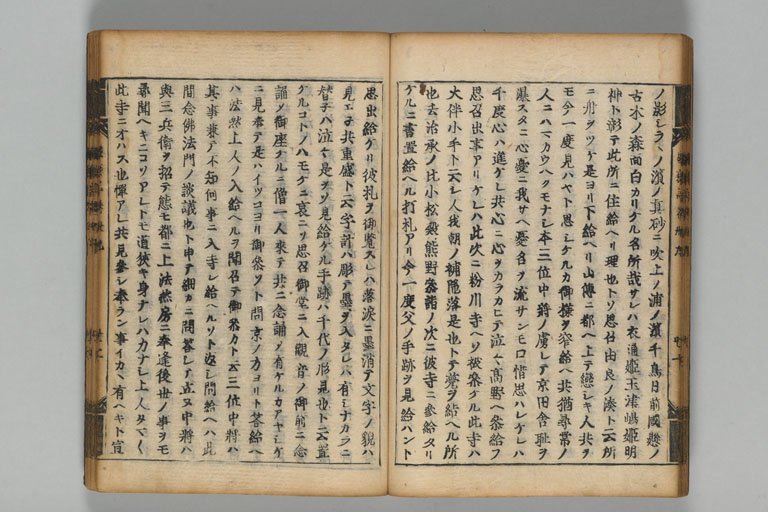 ノ影シラヽノ濱ノ真砂ニ吹上ノ浦ノ濱千鳥日前國懸ノ
古木ノ森面白カリケル名所哉サレハ衣通姫玉津嶋姫明
神ト彰テ此所ニ住給ヘリ理也トソ思召由良ノ湊ト云所
ニ舟ヲツケ是ヨリ下給ヘリ山傳ニ都ヘ上テ戀シキ人共ヲ
モ今一度見ハヤト思シケルカ御様ヲ窄給ヘ共猶尋常ノ
人ニハマカウヘクモナシ本三位中将ノ虜レテ京田舎耻ヲ
曝スタニ心憂ニ我サヘ憂名ヲ流サンモ口惜思ハレケレハ
千度心ハ進ケレ共心ニ心ヲカラカヒテ泣々高野ヘ参給フ
思召出事アリケレハ此次ニ粉川寺ヘソ被参ケル此寺ハ
大伴小手ト云シ人我朝ノ補陀落是也トテ菴ヲ結ヘル所
也去治承ノ比小松殿熊野参詣ノ次ニ彼寺ニ参給タリ
ケルニ書置給ヘル打札アリ今一度父ノ手跡ヲ見給ハント
思出給ケリ彼札ヲ御覧スレハ落涙ニ墨消テ文字ノ貌ハ
見エネ共重盛ト云字計ハ彫テ墨ヲ入タレハ有シナカラニ
替子ハ泣々是ヲソ見給ケル手跡ハ千代ノ形見也ト云置
ケルコトノハモケニ哀ニソ思召御堂ニ入観音ノ御前ニ念
誦メ御座ケルニ僧一人来テ共ニ念誦メ有ケルカアヤシケ
ニ見奉テ是ハイツコヨリ御参ソト問京ノカヨリト答給ヘ
ハ法然上人ノ入給ヘルヲ聞召テ御参カト云三位中将ハ
其事兼テ不知何事ニ入寺シ給ヘルソト返シ問給ヘハ此
間念佛法門ノ談議也ト申テ細カニ問答シテ立ヌ中将ハ
與三兵衛ヲ招テ態モ都ニ上法然房ニ奉逢後世ノ事ヲモ
尋聞ヘキニコソアレトモ道狭キ身ナレハカナシ上人タマく
此寺ニオハス也憚アレ共見参シ奉ラン事イカヘ有ヘキト宣